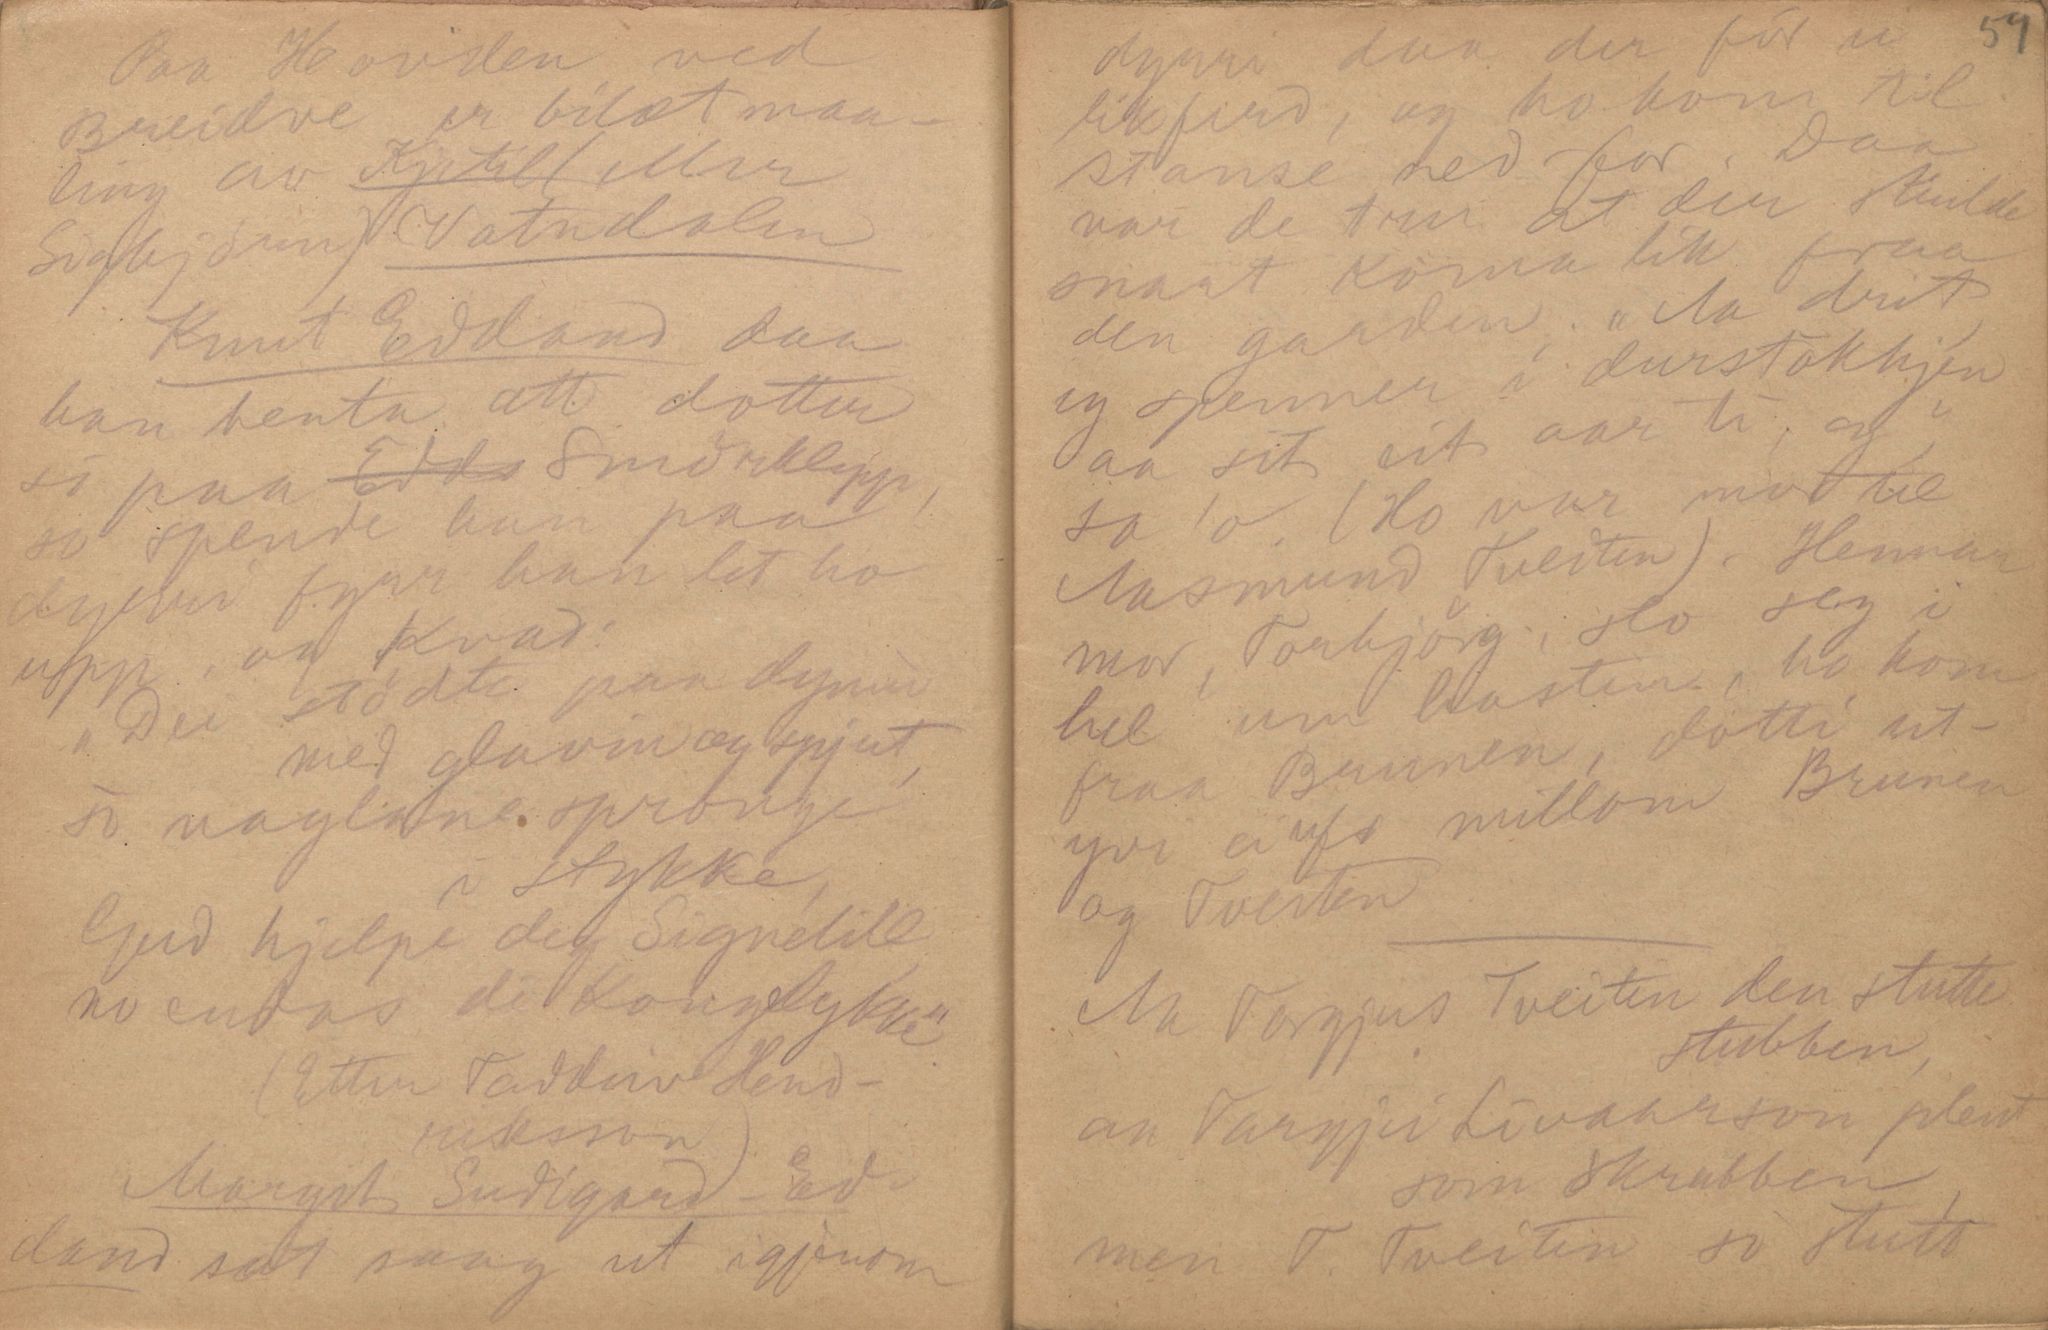 Paa Hovden ved
Breidve er bilætmaa-
ling av Kjetil (Mer
Sigbjörn) Vatndalen
Knut Eddand daa
han henta att dotter
si paa Edda Smörklepp,
so spende han paa
dynni fyrr han let ho
upp, og kvad:
"Dei stödte paa dynni
med glavin og spjut,
so naglane spronge
i stykke,
Gud hjelpe deg Signelill
no endas di Konglykke"
(Etter Taddeiv Hend-
riksson)
Margit Sudigard-Ed-
dand sat saag ut igjenom
59
dynni daa der för ei
likferd, og ho kom til
stanse ned-for. Daa
var de trur at der skulde
snart köma lik fraa
den garden. "Aa drit,
eg spenner i durstokkjen
aa sit eit aar ti, eg",
sa 'o. (Ho var mor til
Aasmund Tveiten). Hennar
mor, Torbjörg, slo seg i
hel um hausten, ho kom
fraa Brunen, dotti ut-
yvi ei ufs millom Brunen
og Tveiten
Aa Torgjus Tveiten den stutte
stubben,
aa Targjei Livaarson plent
som skrubben,
men T. Tveiten so stutt